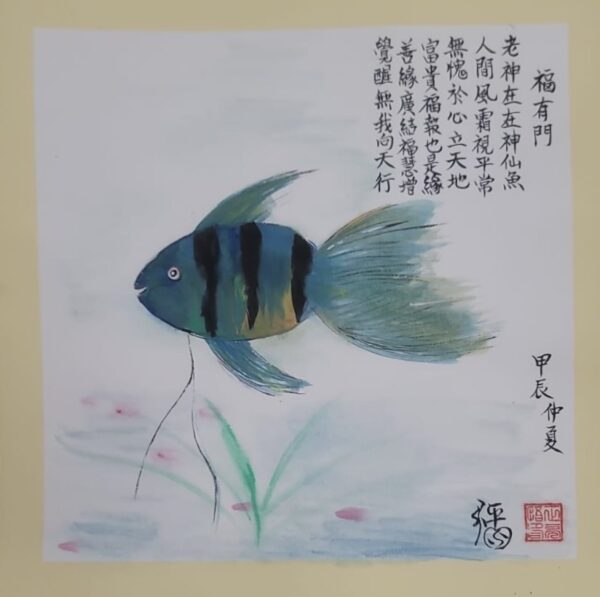 福有門
老神在在神仙魚
人間風霜視平常
無愧於心立天地
富貴福報也是緣
善緣廣結福慧增
覺醒無我向天行
甲辰仲夏